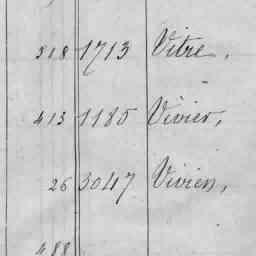 318 1713 Vitre,
413 1180 Vivier,
26 3047 Vivien,
488